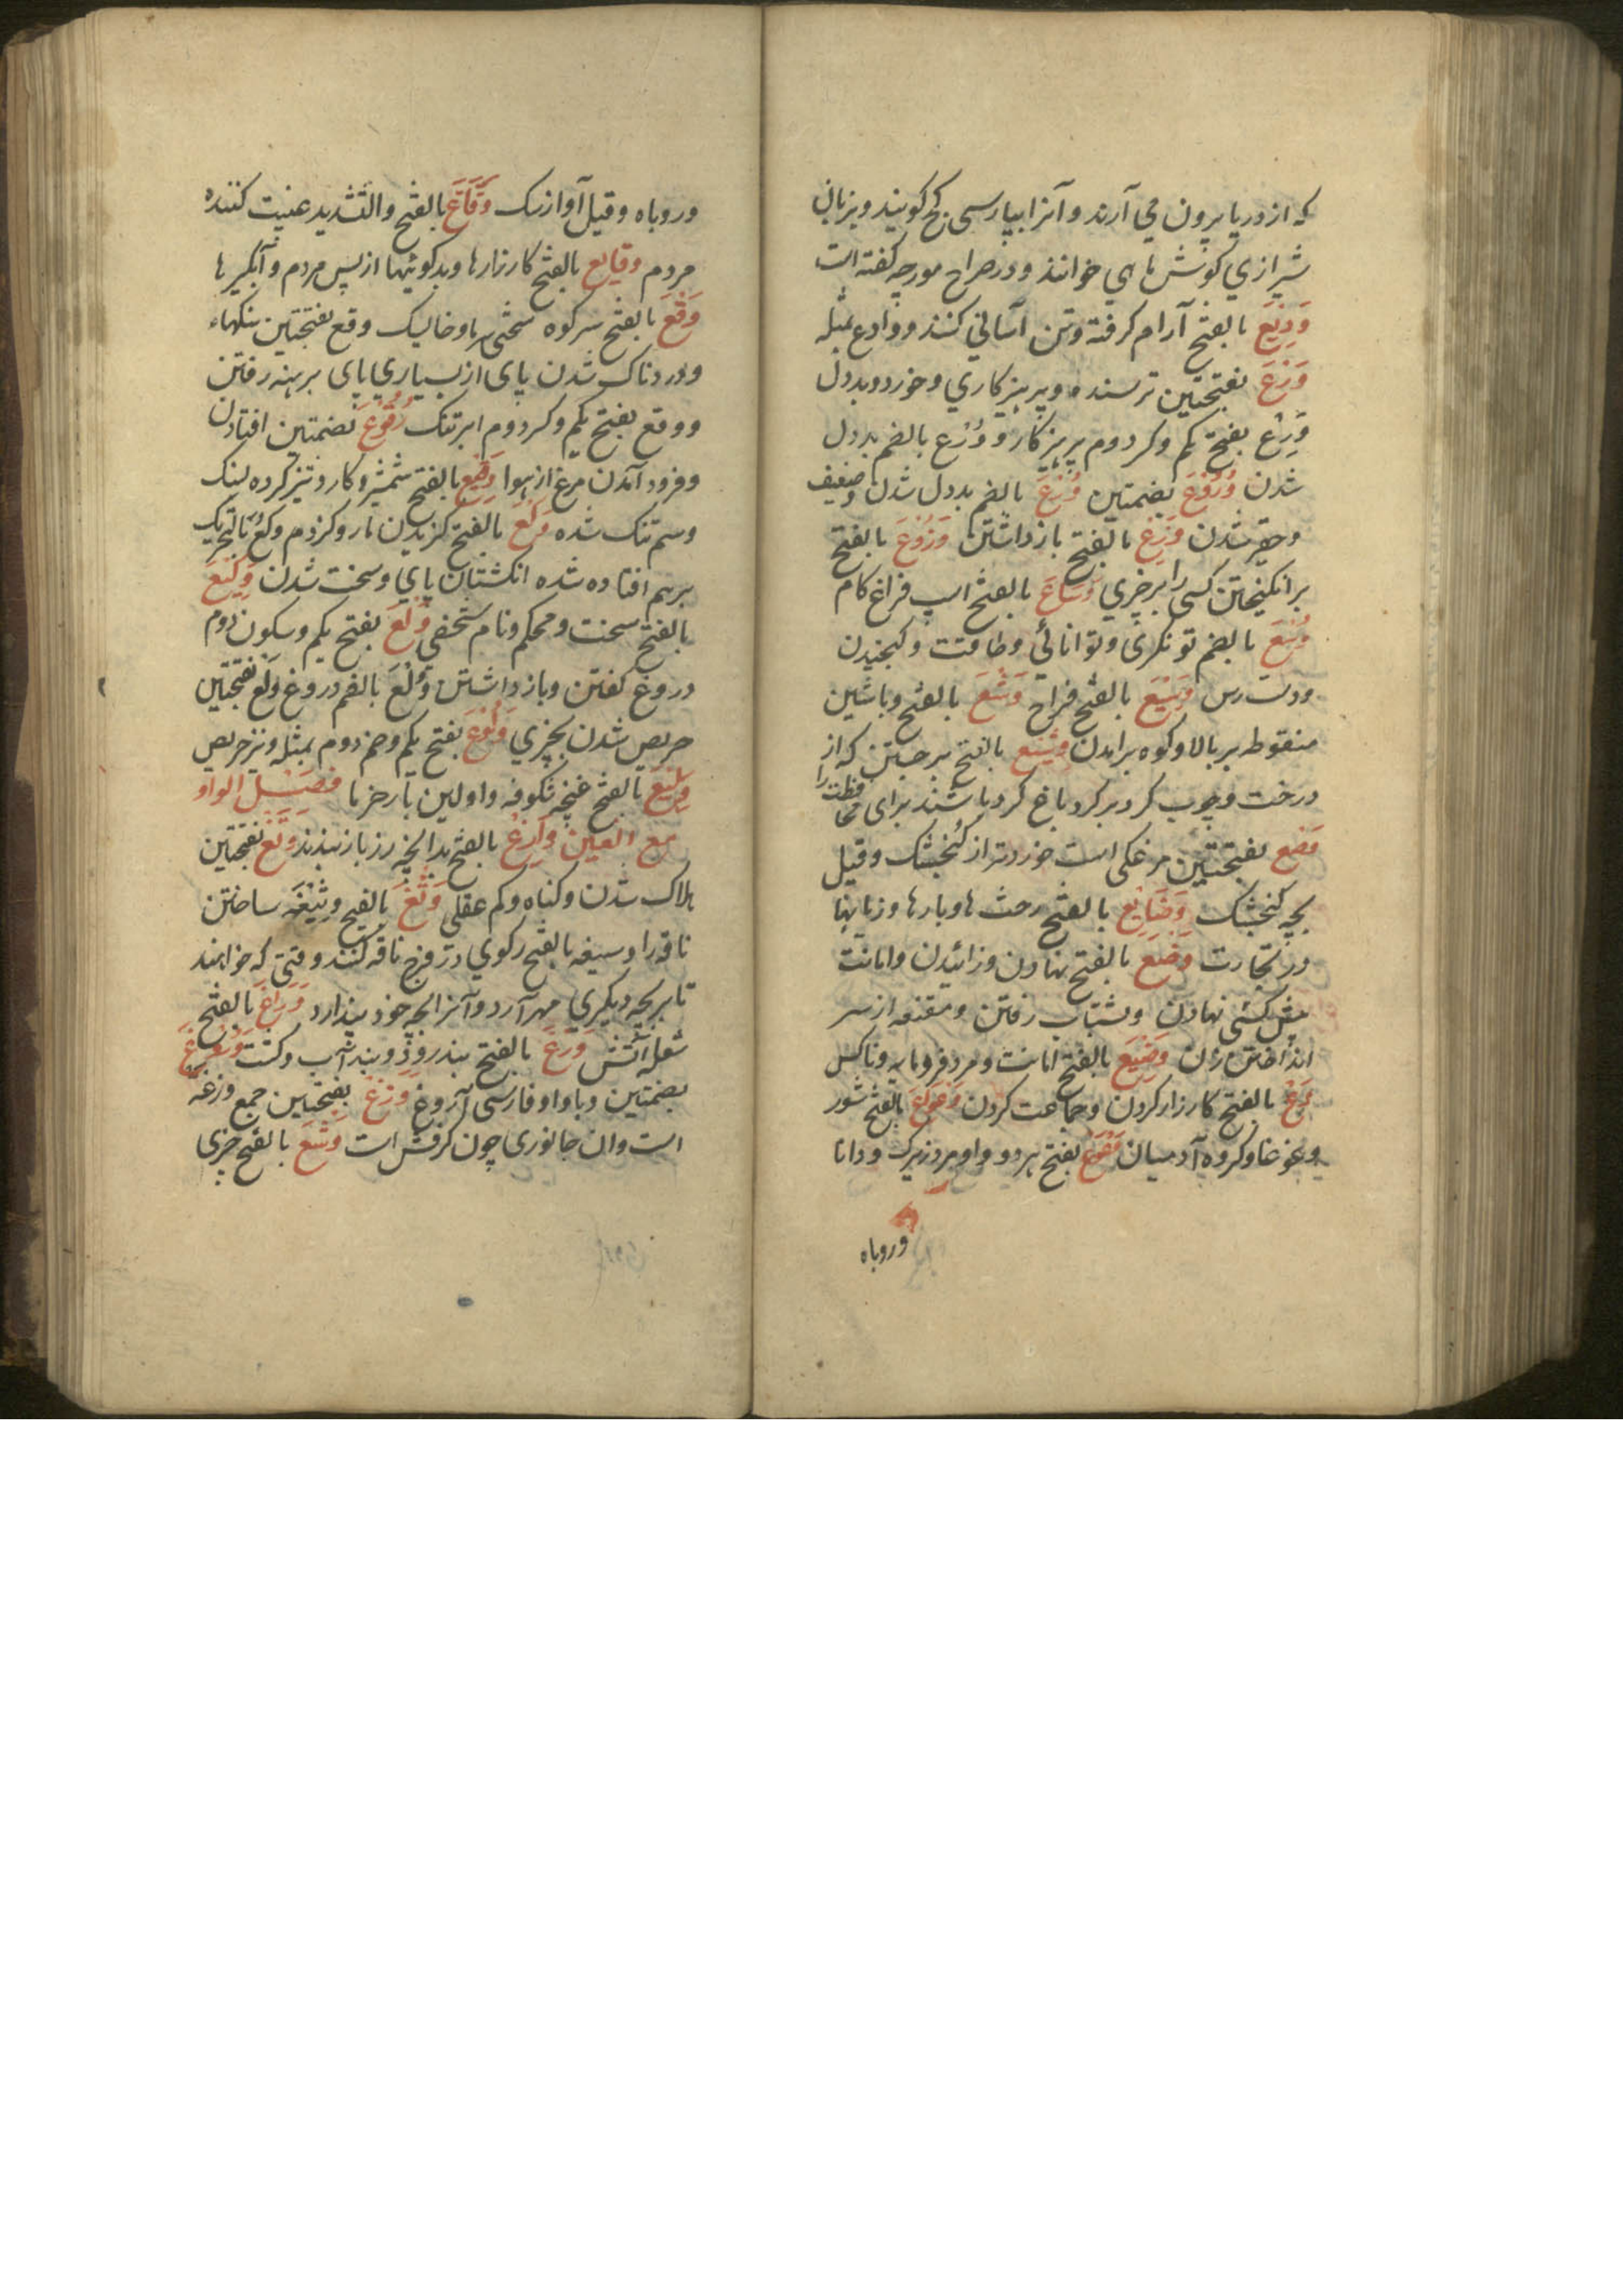 که از دریا بیرون می آرند و آنرا بپارسی کج کویند و بزبان
شیرازی کوش ماهی خوانند و در صراح مورچه کفته است
وَدِیَعَ بالفتح آرام کرفته و تن آسانی کننده و وادع بمثله
وَرَعَ بفتحتین ترسنده و پرهیزکاری و خورد و بددل
وَرِع بفتح یکم و کسر دوم پرهیزکار و وُرْع بالضم بددل
شدن وُرُوعَ بضمتین وُرْعَ بالضم بددل شدن و ضعیف
و حقیر شدن وَزِعَ بالفتح بازداشتن وَزُوعَ بالفتح
برانکیختن کسی را بر چیزی وَسَاعَ بالفتح اسپ فراخ کام
وُسْعَ بالضم توانکری و توانائی و طاقت و کنجیدن
و دست رس وَسِیْعَ بالفتح فراخ وَشْعَ بالفتح و باشین
منقوطه بر بالا و کوه برامدن وشیع بالفتح برچیتن که از
درخت و چوب کرد بر کرد باغ کرده باشند برای محافظت را
وَصَع بفتحتین مرغکی است خوردتر از کنجشک و قیل
بچه کنجشک وَضَایَع بالفتح رخت ها و بارها و زیانها
در تجارت وَضَعَ بالفتح نهادن و زائیدن و امانت
پیش کسی نهادن و بشتاب رفتن و مقنعه از سر
انداختن زن وَضِیْعَ بالفتح امانت و مرد فرومایه و ناکس
بالفتح کارزار کردن و جماعت کردن وَعْوَاعَ بالفتح شور
و غوغا و کروه آدمیان وَعْوَعَ بفتح هر دو واو مرد زیرک و دانا
و روباه
و روباه و قیل آواز سک وَقَّاعَ بالفتح و التشدید غیبت کننده
مردم وقایع بالفتح کارزارها و بدکوئیها از پس مردم و آبکیرها
وَقْعَ بالفتح سر کوه سختی سرما و خالیک وقع بفتحتین سنکها
و دردناک شدن پای از بسیاری پای برهنه رفتن
و وقع بفتح یکم و کسر دوم ابر تنک وُقُوعَ بضمتین افتادن
و فرود آمدن مرغ از هوا وَقِیْعَ بالفتح شمشیر و کارد تیز کرده لنک
و سم تنک شده وَکْعَ بالفتح کزیدن مار و کژدم وکع بالتحریک
برهم افتاده شده انکشتان پای و سخت شدن وَکِیْعَ
بالفتح سخت و محکم و نام شخصی وَلْعَ بفتح یکم و سکون دوم
دروغ کفتن و بازداشتن وُلْعَ بالضم دروغ وَلَع بفتحتین
حریص شدن بچیزی وَلُوْعَ بفتح یکم و ضم دوم بمثله و نیز حریص
وَلِیْعَ بالفتح غنچه شکوفه و اولین بار خرما فصل الواو
مع الغین وَارِغْ بالفتح بدانچه رز باز بندند وَتَغْ بفتحتین
هلاک شدن و کناه و کم عقلی وَثْغَ بالفتح وثیغه ساختن
ناقه را وسیغه بالفتح رکوی در فرج ناقه کنند وقتی که خواهند
تا بر بچه دیکری مهر آرد و آنرا بچه خود پندارد وَرَاغَ بالفتح
شعله آتش وَرْغَ بالفتح بند رود و بند آب و کشت وُرُغْ
بضمتین و با واو فارسی آروغ وَزَغَ بفتحتین جمع وزغه
است و ان جانوری چون کرفش است وَشْغَ بالفتح چیزی